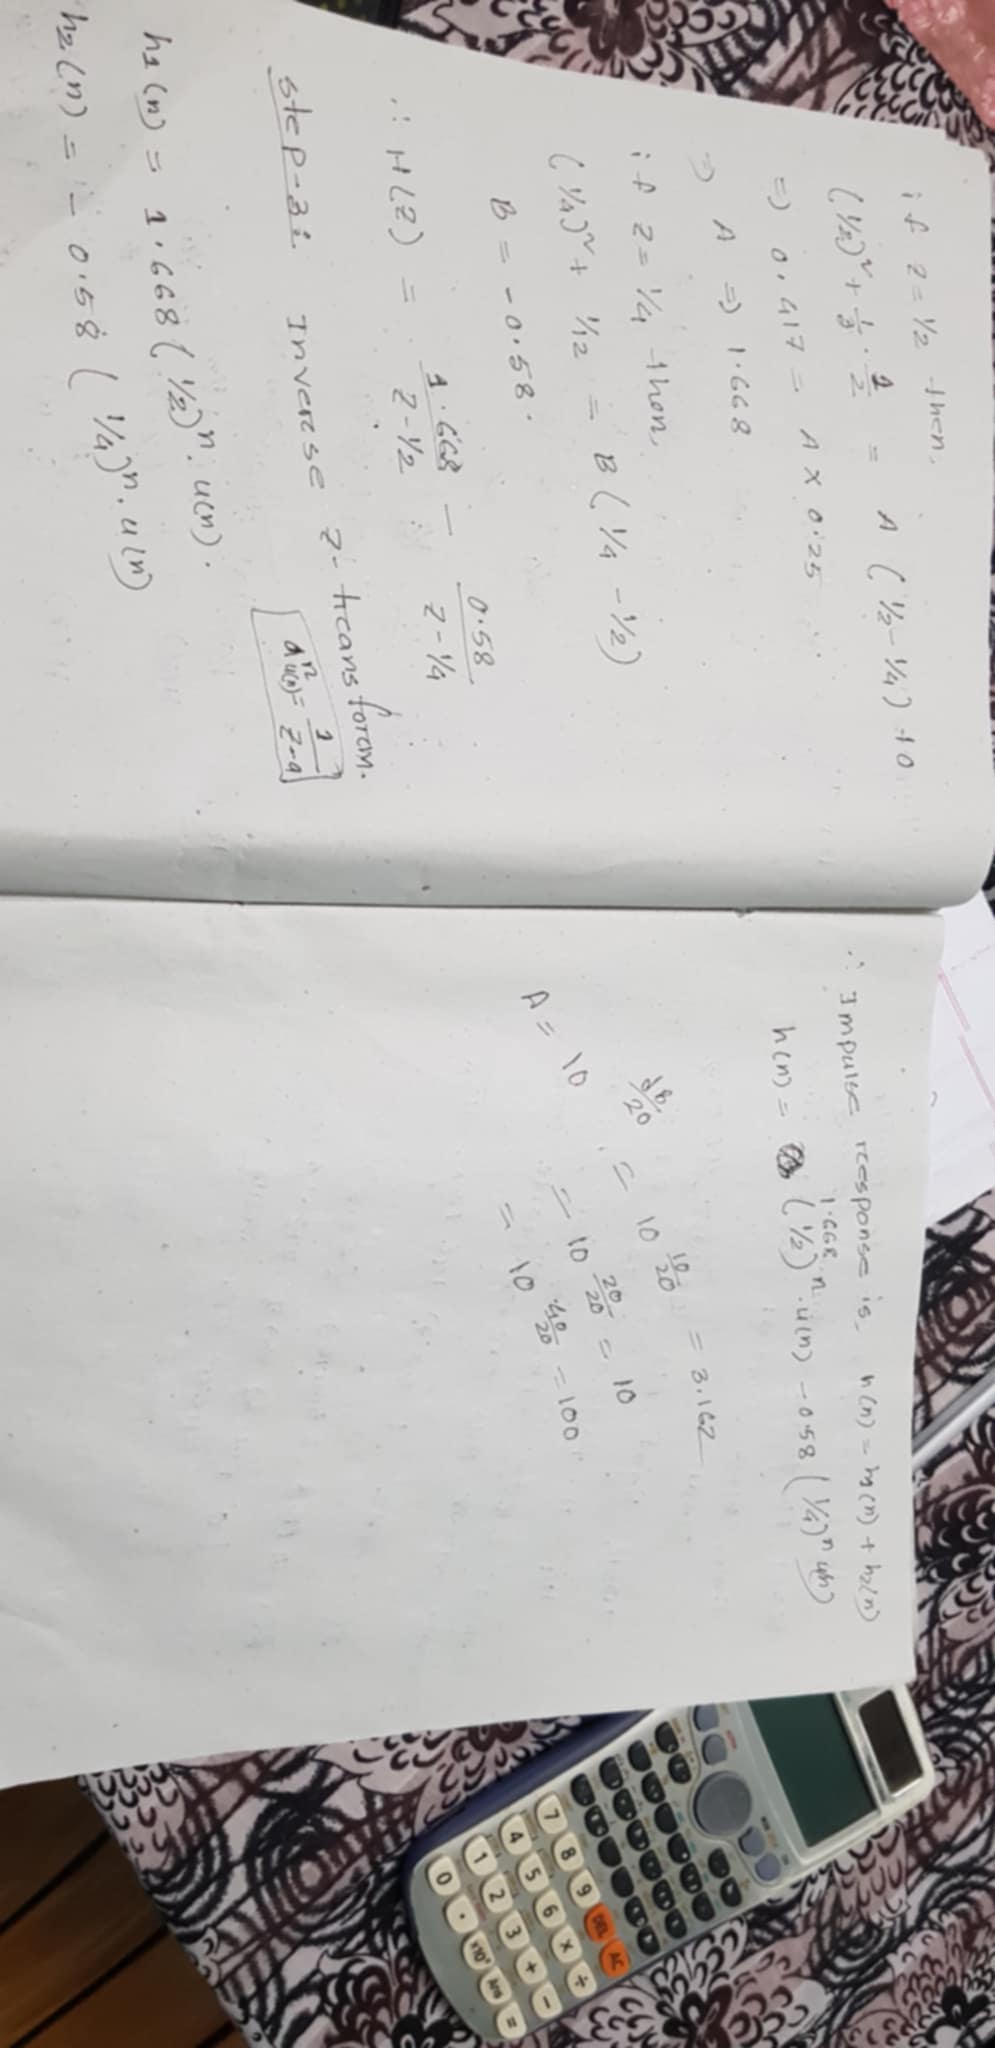 if z = 1/2 then,
(1/2)² + 1/3 · 1/2 = A (1/2 - 1/4) + 0
=> 0.417 = A X 0.25
=> A => 1.668
if z = 1/4 then,
(1/4)² + 1/12 = B (1/4 - 1/2)
B = - 0.58.
∴ H(Z) = 1.668 / Z - 1/2 - 0.58 / Z - 1/4
step-3: Inverse z-transform.
a^n u(n) = 1 / Z-a
h1(n) = 1.668 (1/2)^n. u(n).
h2(n) = - 0.58 (1/4)^n. u(n)
∴ Impulse response is, h(n) = h1(n) + h2(n)
h(n) = 1.668 (1/2)^n. u(n) - 0.58 (1/4)^n u(n)
A = 10^(dB/20) = 10^(10/20) = 3.162
= 10^(20/20) = 10
= 10^(40/20) = 100
DEL AC
7 8 9
4 5 6 × ÷
1 2 3 + -
0 . ×10ˣ Ans =